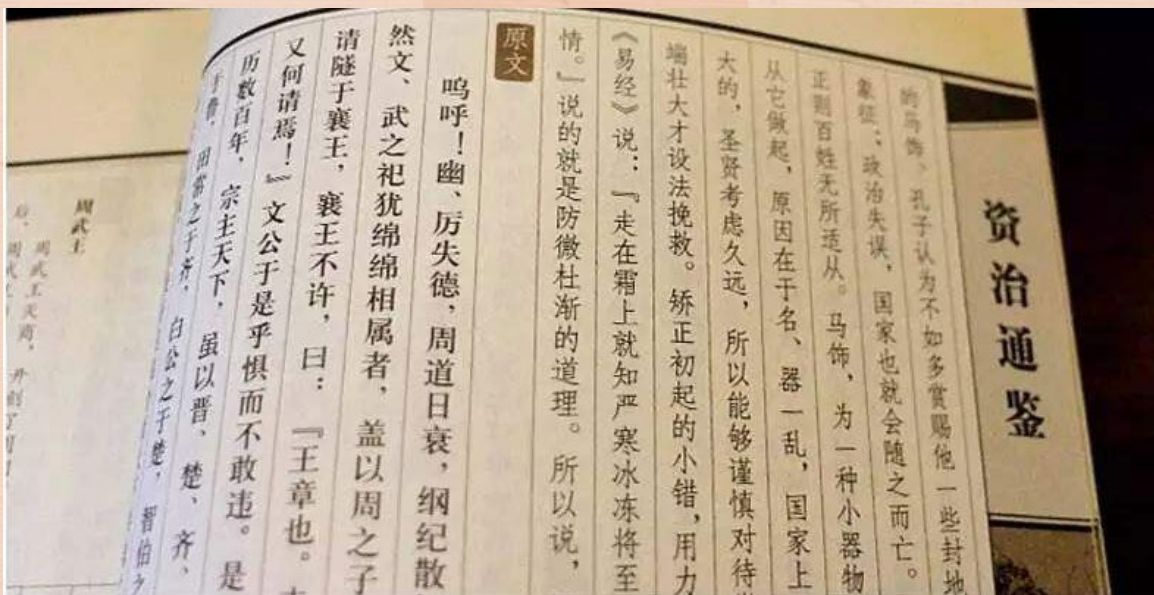 资治通鉴
的马饰、孔子认为不如多赏赐他一些封地
象征；政治失误，国家也就会随之而亡。
正则百姓无所适从。马饰，为一种小器物
从它做起，原因在于名、器一乱，国家上
大的，圣贤考虑久远，所以能够谨慎对待
端壮大才设法挽救。矫正初起的小错，用力
《易经》说：『走在霜上就知严寒冰冻将至
情。』说的就是防微杜渐的道理。所以说，
原文
呜呼！幽、厉失德，周道日衰，纲纪散
然文、武之祀犹绵绵相属者，盖以周之子
请隧于襄王，襄王不许，曰：『王章也。
又何请焉！』文公于是乎惧而不敢违。是
历数百年，宗主天下，虽以晋、楚、齐、
于鲁，田常之于齐，白公之于楚，智伯之
周武王